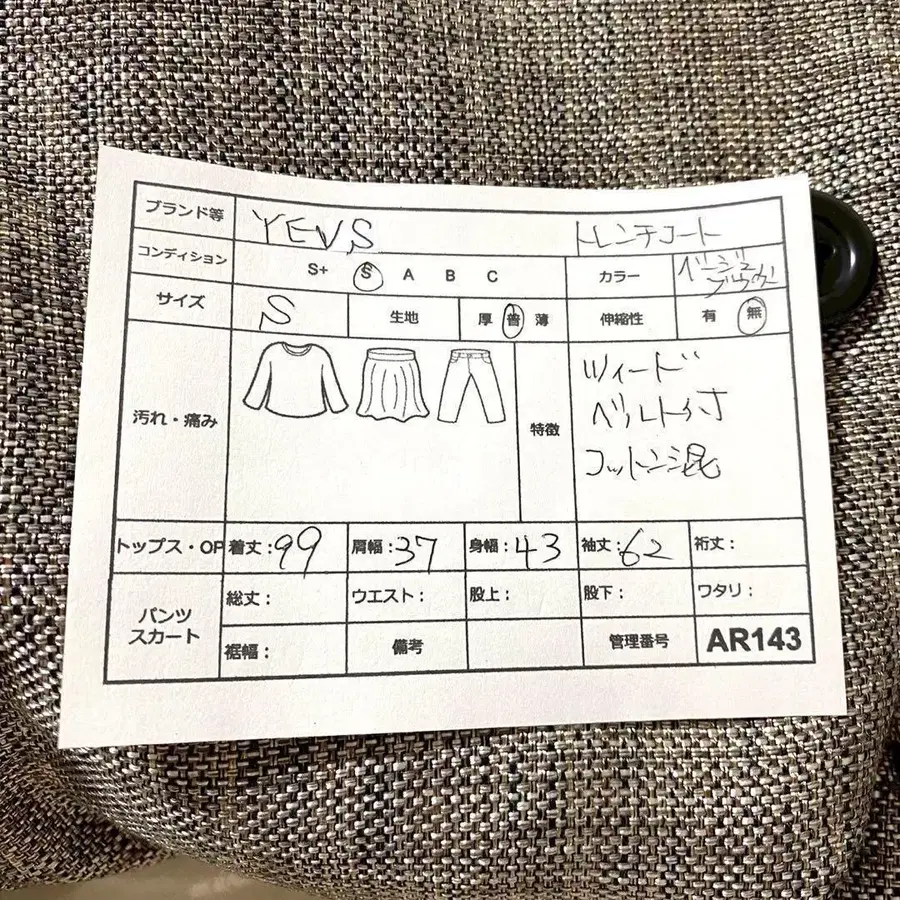 ブランド等 YEVS トレンチコート
コンディション S+ S A B C カラー ベージュ ブラウン
サイズ S 生地 厚 普 薄 伸縮性 有 無
汚れ・痛み 特徴 ツィード
ベルト付
コットン混
トップス・OP 着丈:99 肩幅:37 身幅:43 袖丈:62 裄丈:
パンツ スカート 総丈: ウエスト: 股上: 股下: ワタリ:
裾幅: 備考 管理番号 AR143